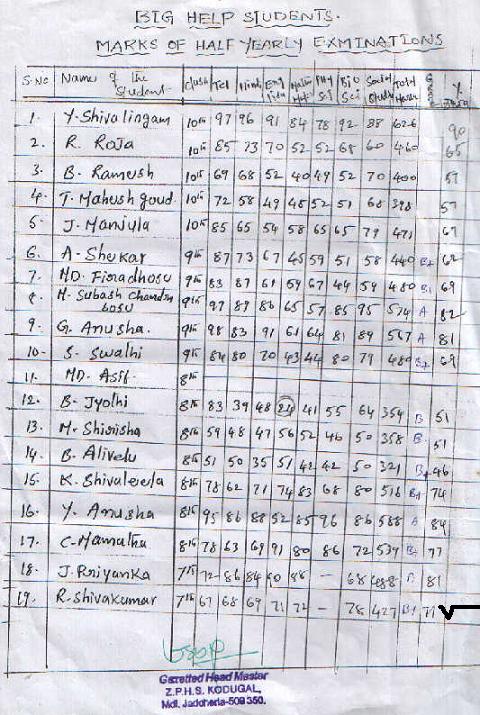 BIG HELP STUDENTS.
MARKS OF HALF YEARLY EXMINATIONS
S.No Name of the Student Class Tel Hindi Eng Phy Sci Bio Sci Social Study Total
1. Y. Shivalingam 10th 97 96 91 84 78 92 88 626 90
2. R. Roja 10th 85 73 70 52 52 68 60 460 65
3. B. Ramesh 10th 69 68 52 40 49 52 70 400 57
4. T. Mahesh goud 10th 72 58 49 45 52 51 68 398 57
5. J. Manjula 10th 85 65 54 58 65 65 79 471 67
6. A. Shekar 9th 87 73 67 45 59 51 58 440 B+ 62
7. MD. 9th 83 87 61 59 67 44 59 480 69
8. H. Subash Chandra bosu 9th 97 89 86 65 57 85 95 574 A 82
9. G. Anusha. 9th 98 83 91 61 64 81 89 567 A 81
10. S. Swathi 9th 84 80 70 43 44 80 79 480 B+ 69
11. MD. Asif. 8th
12. B. Jyothi 8th 83 39 48 24 41 55 64 354 B 51
13. M. Shirisha 8th 59 48 47 56 52 46 50 358 B 51
14. B. Alivelu 8th 51 50 35 51 42 42 50 321 46
15. K. Shivaleela 8th 78 62 71 74 83 68 80 516 74
16. Y. Anusha 8th 95 86 88 52 85 96 86 588 A 84
17. C. Mamatha 8th 78 63 69 91 80 86 72 539 77
18. J. Priyanka 7th 72 86 84 90 88 - 68 488 81
19. R. Shivakumar 7th 67 68 69 71 72 - 78 427 71
Gazetted Head Master
Z.P.H.S. KODUGAL,
Mdl. Jadcherla-509 350.